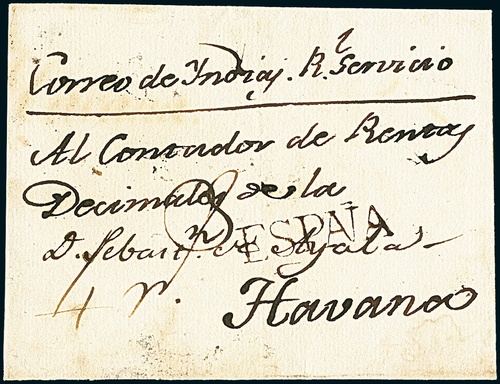 Correo de Yndias. Rl. Servicio
Al Contador de Rentas
Decimales de la
Dn. Sebastn. de Ayala
ESPAÑA
4 r.
Havana